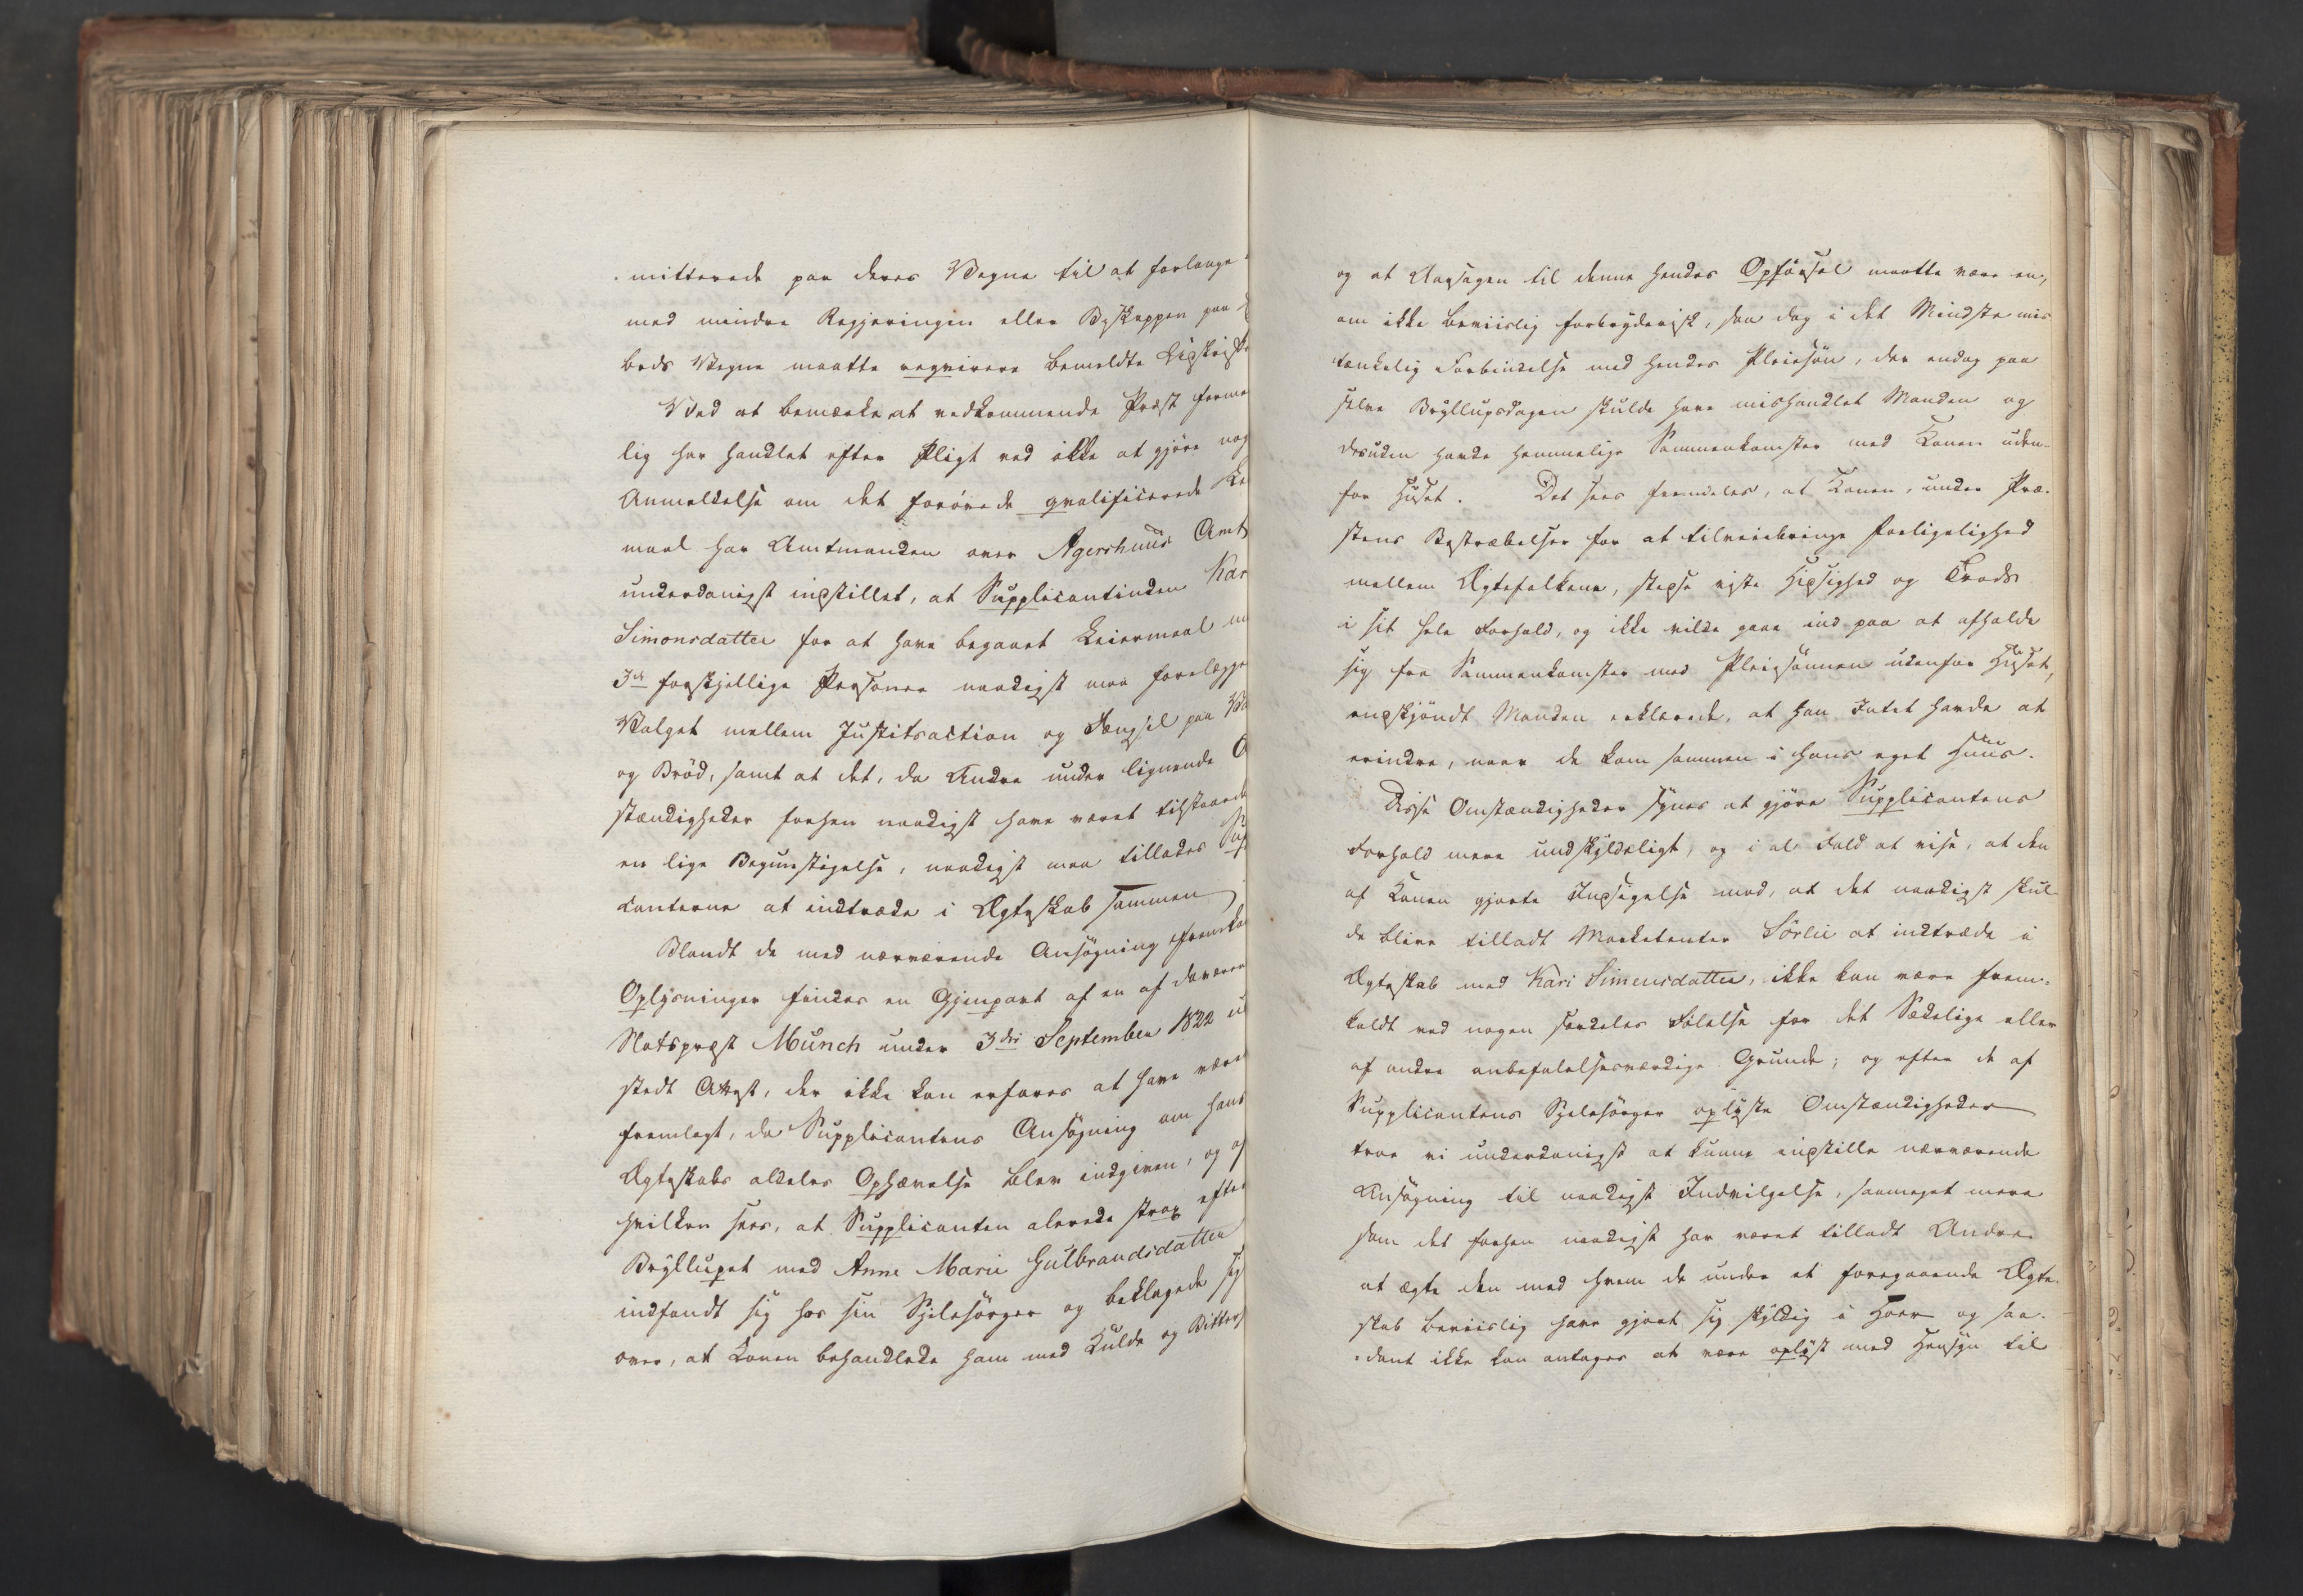 mitterede paa deres Vegne til at forlange
med mindre Regjeringen eller Biskoppen paa
beds Vegne maatte reqvirere bemeldte
Ved at bemærke at vedkommende Præst forme
lig har handlet efter Pligt ved ikke at gjøre nog
Anmeldelse om det forøvede qvalificerede Lei
maal har Amtmanden over Agershuus Amt
underdanigst indstillet, at Supplicantinden Kar
Simonsdatter for at have begaaet Leiermaal m
3de forskjellige Personer naadigst maa forelægge
Valget mellem Justitsaction og Fængsel paa Va
og Brød, samt at det, da Andre under lignende O
stændigheder forhen naadigst have været tilstaaede
en lige Begunstigelse, naadigst maa tillades Sup
canterne at indtræde i Ægteskab sammen
Blandt de med nærværende Ansøgning fremko
Oplysninger findes en Gjenpart af en af daværen
Slotspræst Munch under 3die September 1822 u
stedt Attest, der ikke kan erfares at have være
fremlagt, da Supplicantens Ansøgning om hans
Ægteskabs aldeles Ophævelse blev indgiven, og af
hvilken sees, at Supplicanten alerede strax efter
Brylluppet med Anne Marie Gulbrandsdatter
indfandt sig hos sin Sjelesørger og beklagede sig
over, at Konen behandlede ham med Kulde og Bitter
og at Aarsagen til denne hendes Opførsel maatte være en,
om ikke beviislig forbryderisk, saa dog i det Mindste mis
tænkelig Forbindelse med hendes Pleiesøn, der endog paa
selve Bryllupsdagen skulde have mishandlet Manden og
desuden havde hemmelige Sammenkomster med Konen uden-
for Huset. Det sees fremdeles, at Konen, under Præ-
stens Bestræbelser for at tilveiebringe Forligelighed
mellem Ægtefolkene, stedse viste Hidsighed og Trods
i sit hele Forhold, og ikke vilde gaae ind paa at afholde
sig fra Sammenkomster med Pleiesønnen udenfor Huset,
endskjøndt Manden erklærede, at han Intet havde at
erindre, naar de kom sammen i hans eget Huus.
Disse Omstændigheder synes at gjøre Supplicantens
Forhold mere undskyldeligt, og i al Fald at vise, at den
af Konen gjorte Indsigelse mod, at det naadigst skul-
de blive tilladt Marketenter Sørlie at indtræde i
Ægteskab med Kari Simensdatter, ikke kan være frem-
kaldt ved nogen særdeles Følelse for det Sædelige eller
af andre anbefalelsesværdige Grunde; og efter de af
Supplicantens Sjelesørger oplyste Omstændigheder
troe vi underdanigst at kunne indstille nærværende
Ansøgning til naadigst Indvilgelse, saameget mere
som det forhen naadigst har været tilladt Andre
at ægte den med hvem de under et foregaaende Ægte-
skab beviislig have gjort sig skyldig i Hoer og saa-
dant ikke kan antages at være oplyst med Hensyn til